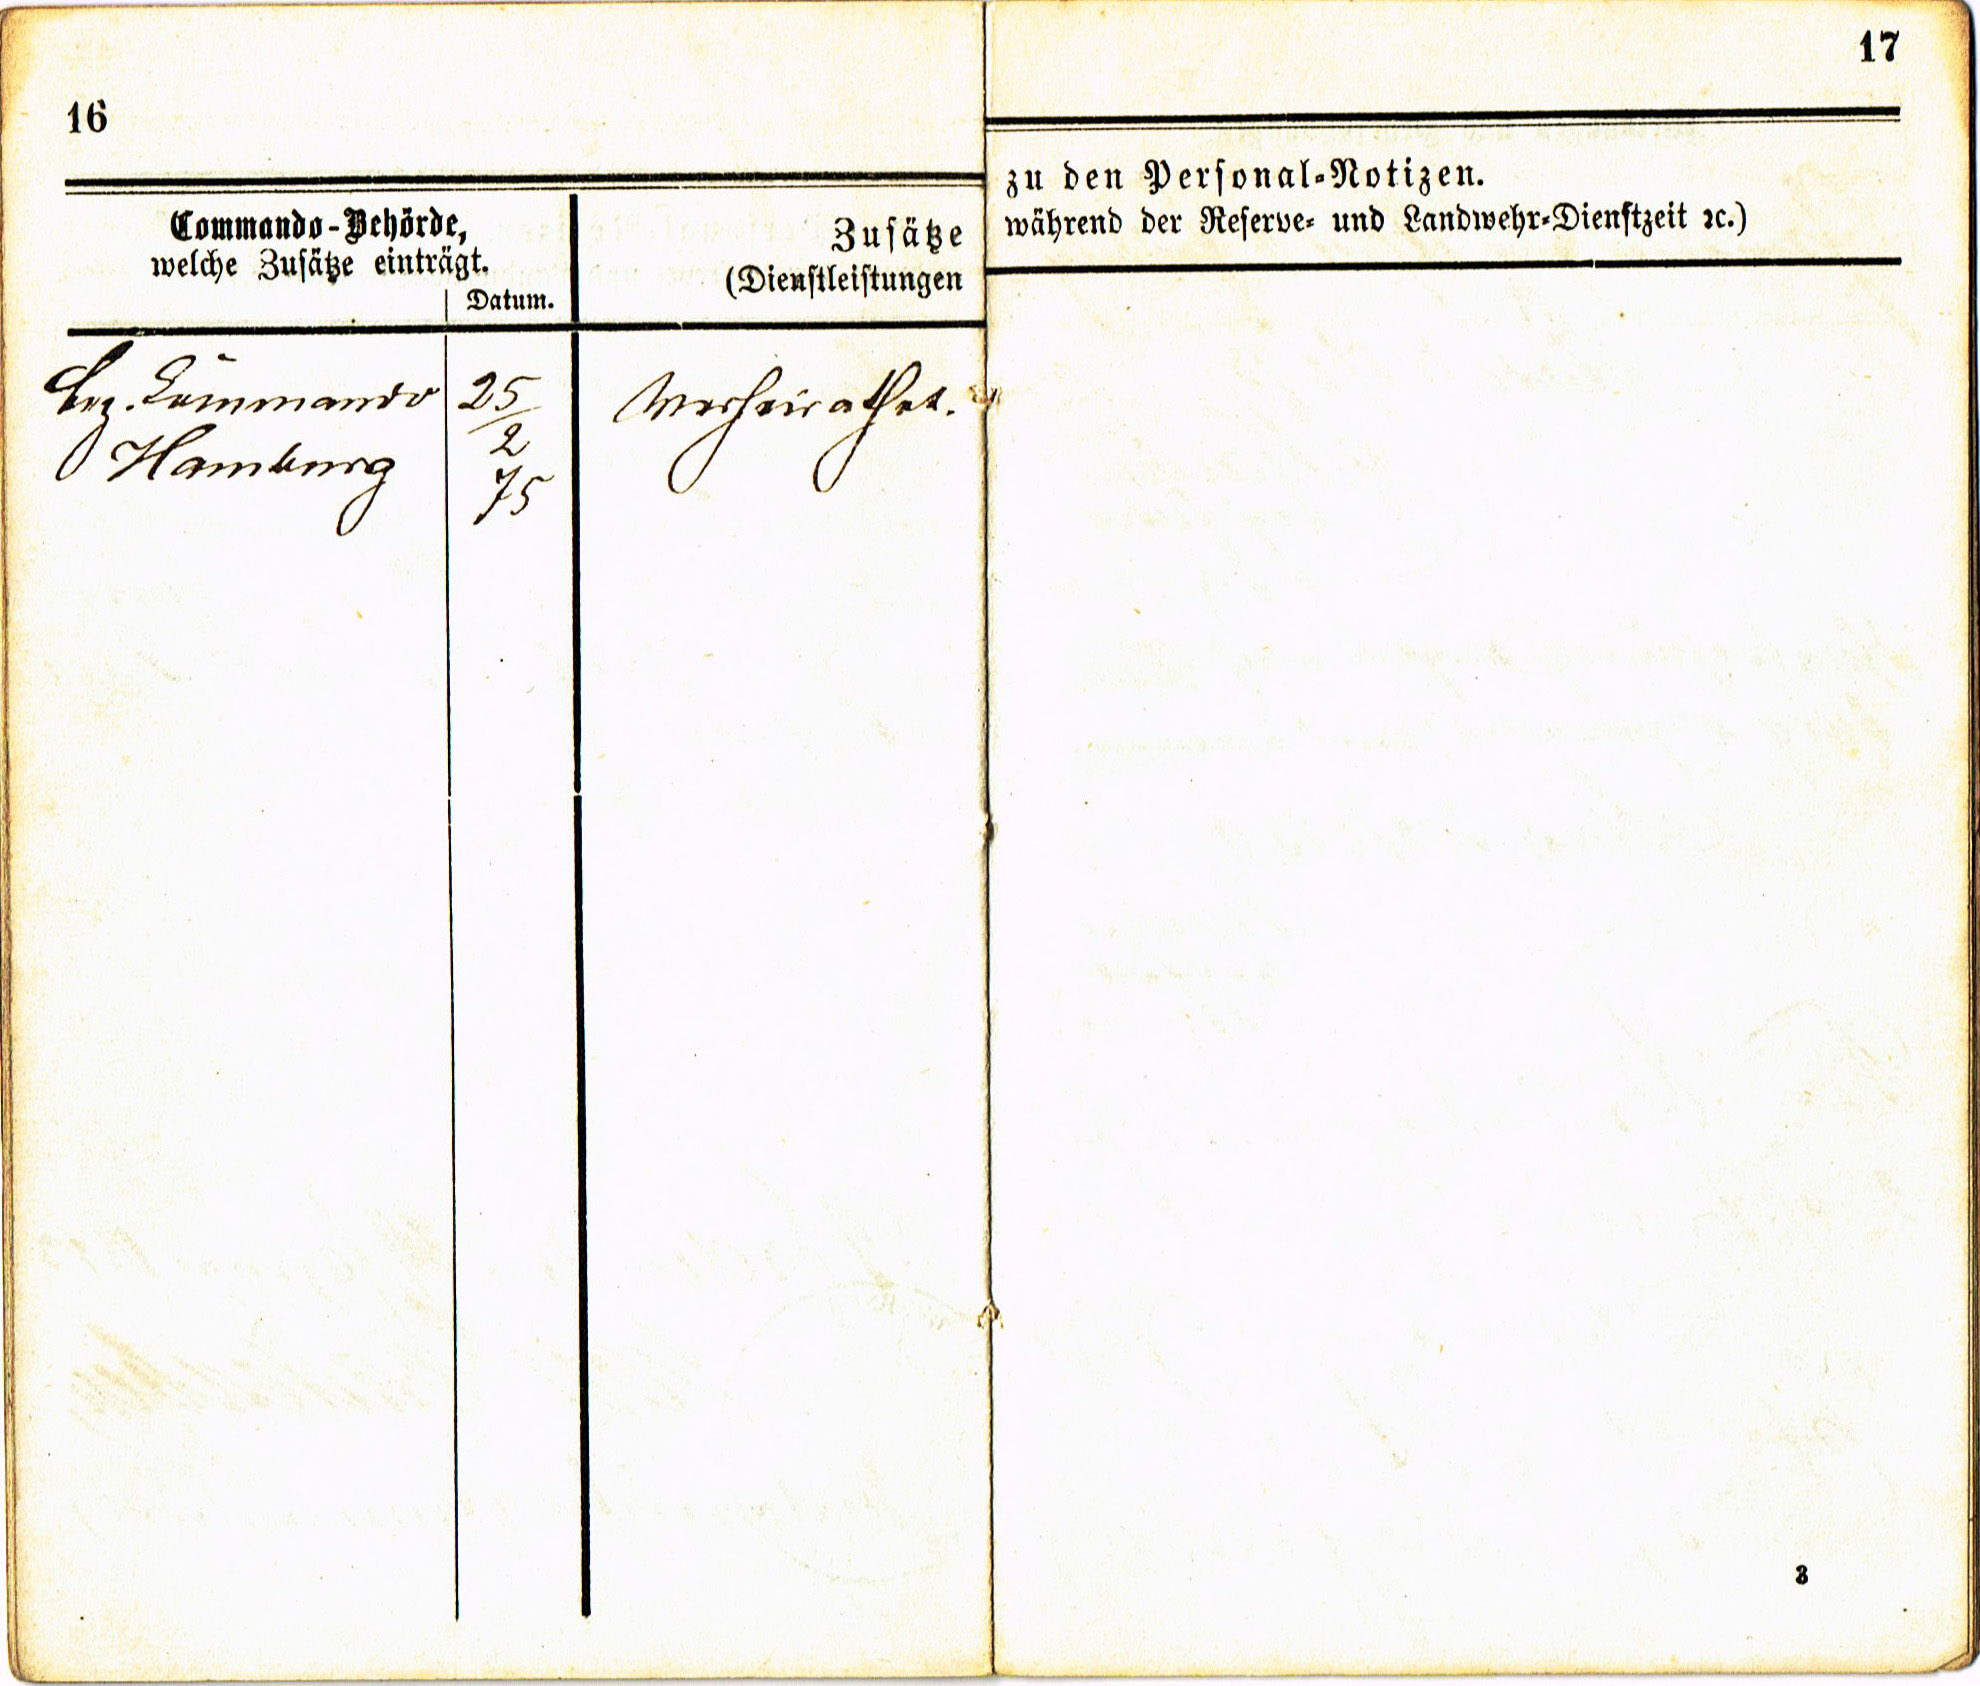 16
Commando-Behörde,
welche Zusätze einträgt.
Datum.
Zusätze
(Dienstleistungen
Bez. Commando
Hamburg
25
2
75
Verheirathet.
17
zu den Personal-Notizen.
während der Reserve- und Landwehr-Dienstzeit ꝛc.)
3